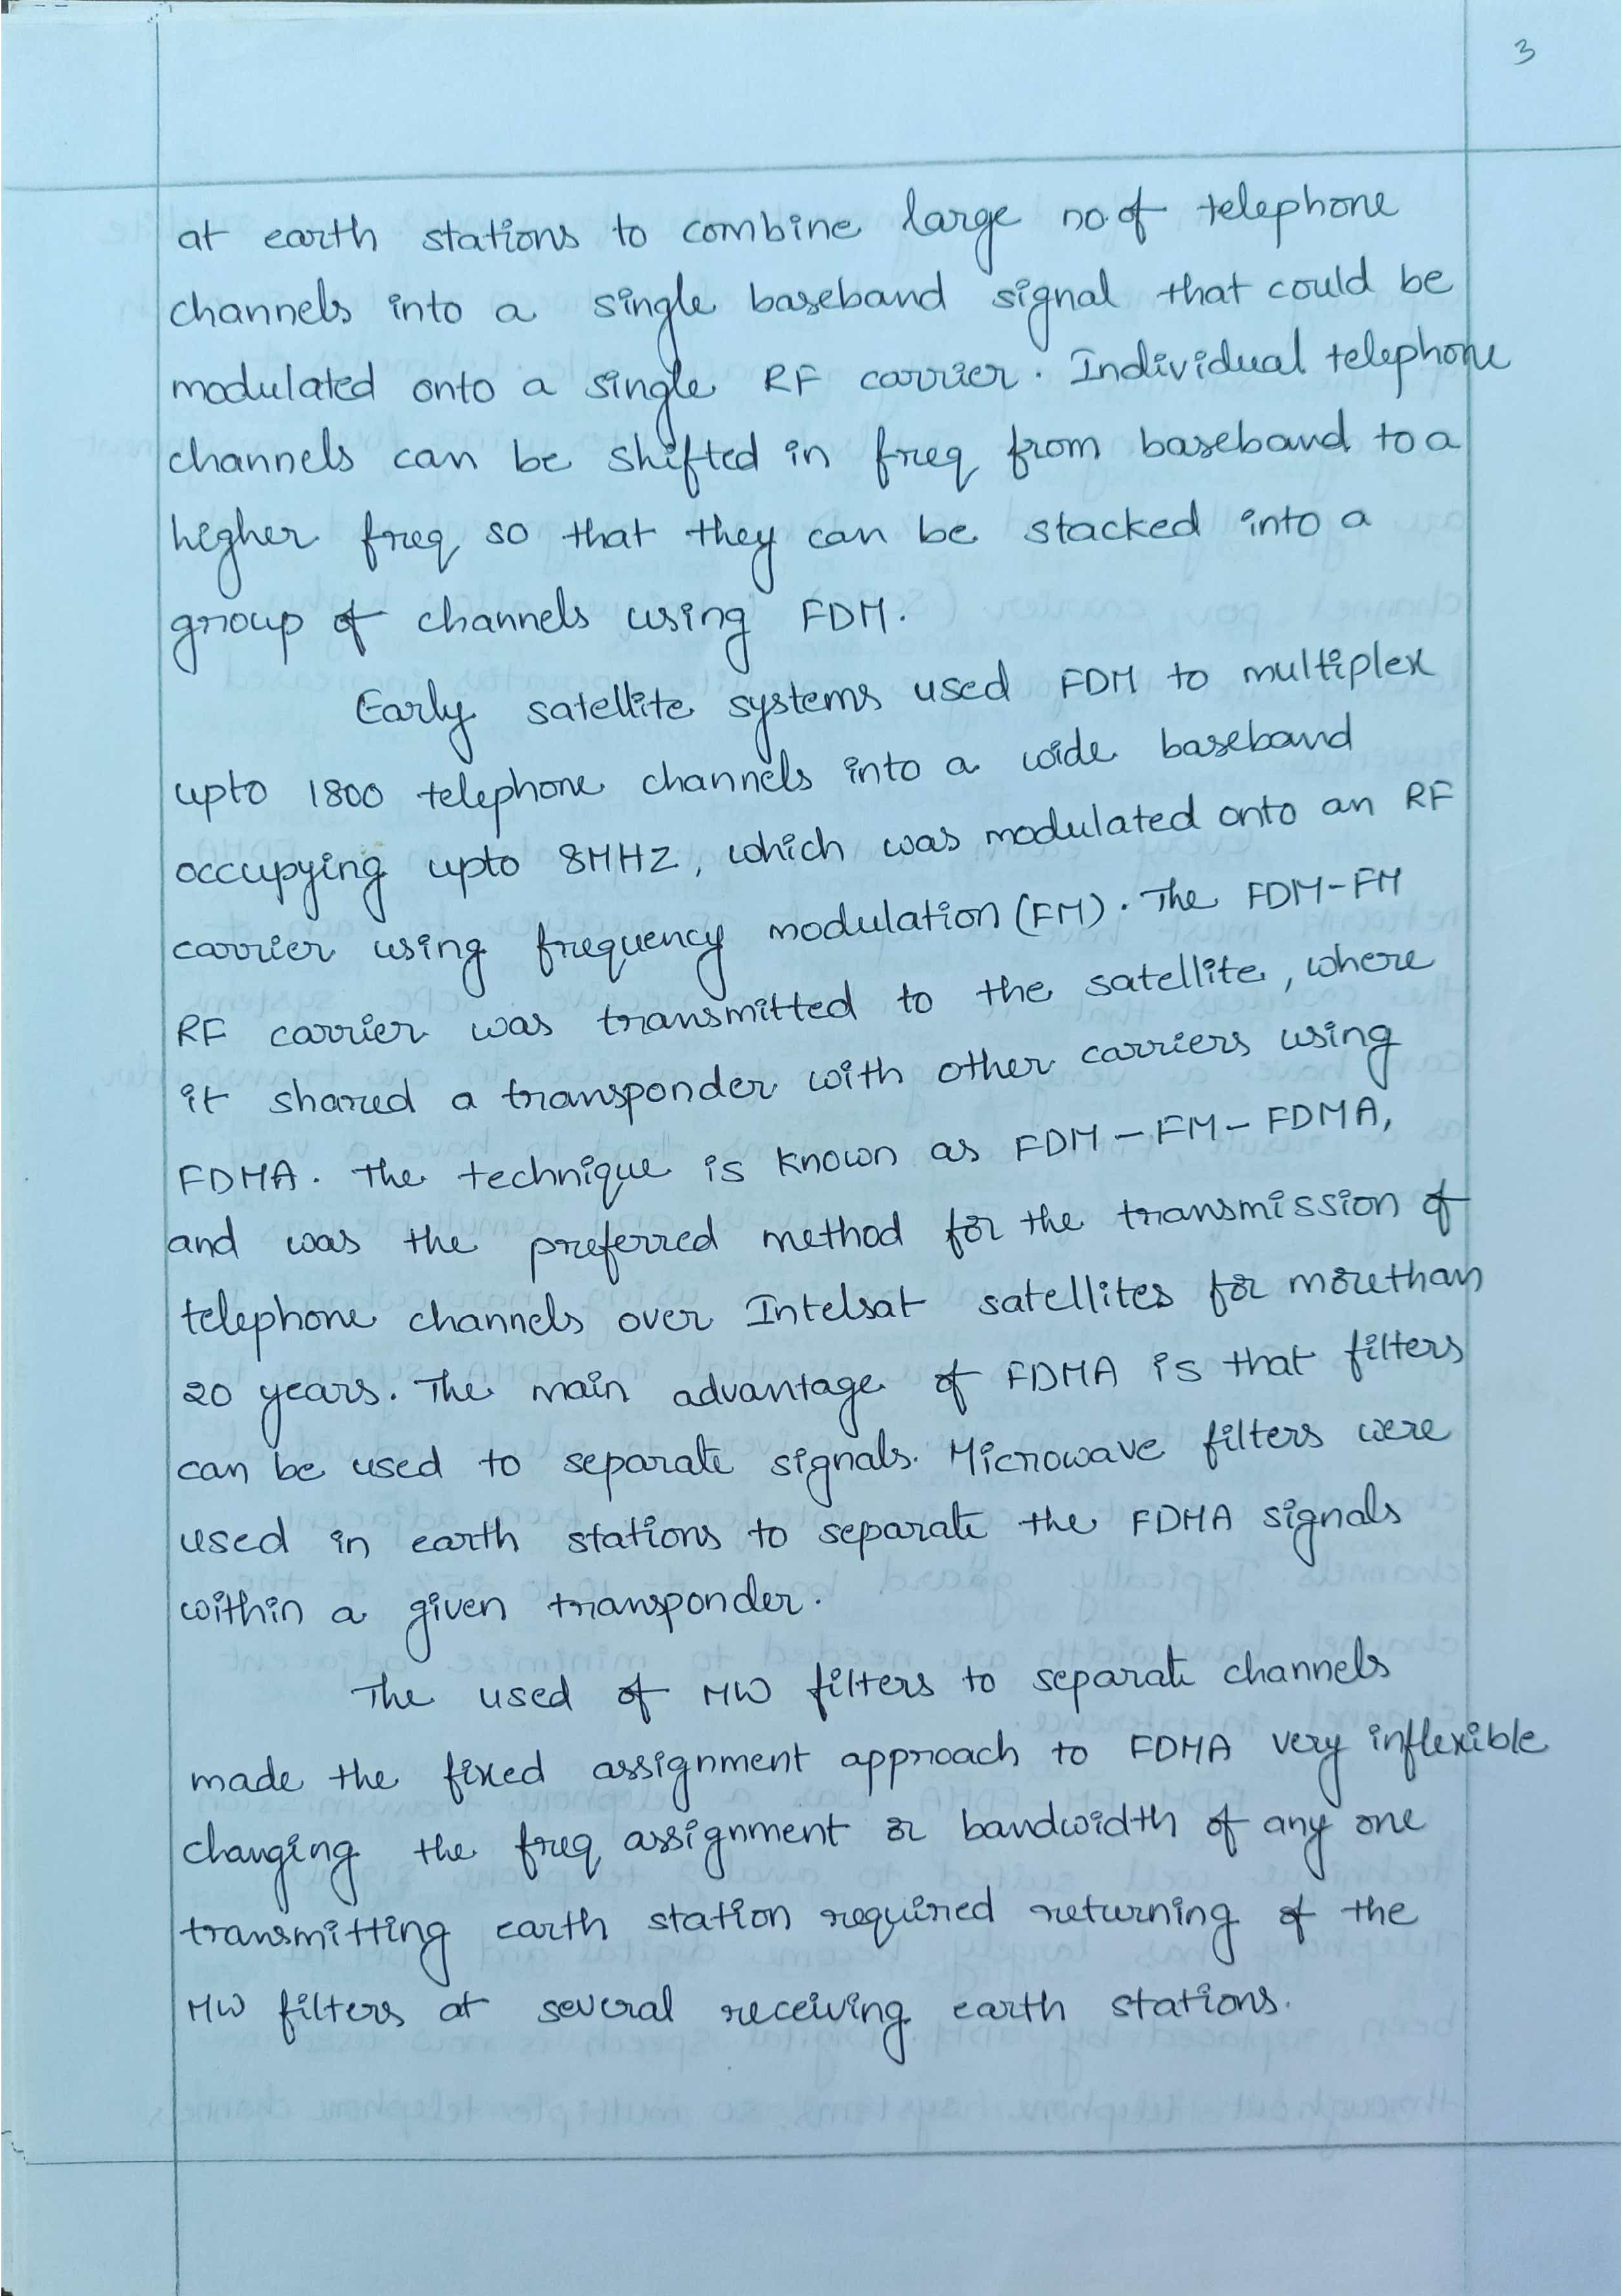 3
at earth stations to combine large no.of telephone
channels into a single baseband signal that could be
modulated onto a single RF carrier. Individual telephone
channels can be shifted in freq from baseband to a
higher freq so that they can be stacked into a
group of channels using FDM.
Early satellite systems used FDM to multiplex
upto 1800 telephone channels into a wide baseband
occupying upto 8MHZ, which was modulated onto an RF
carrier using frequency modulation (FM). The FDM-FM
RF carrier was transmitted to the satellite, where
it shared a transponder with other carriers using
FDMA. The technique is known as FDM-FM-FDMA,
and was the preferred method for the transmission of
telephone channels over Intelsat satellites for morethan
20 years. The main advantage of FDMA is that filters
can be used to separate signals. Microwave filters were
used in earth stations to separate the FDMA signals
within a given transponder.
The used of MW filters to separate channels
made the fixed assignment approach to FDMA very inflexible
changing the freq assignment or bandwidth of any one
transmitting earth station required returning of the
MW filters at several receiving earth stations.